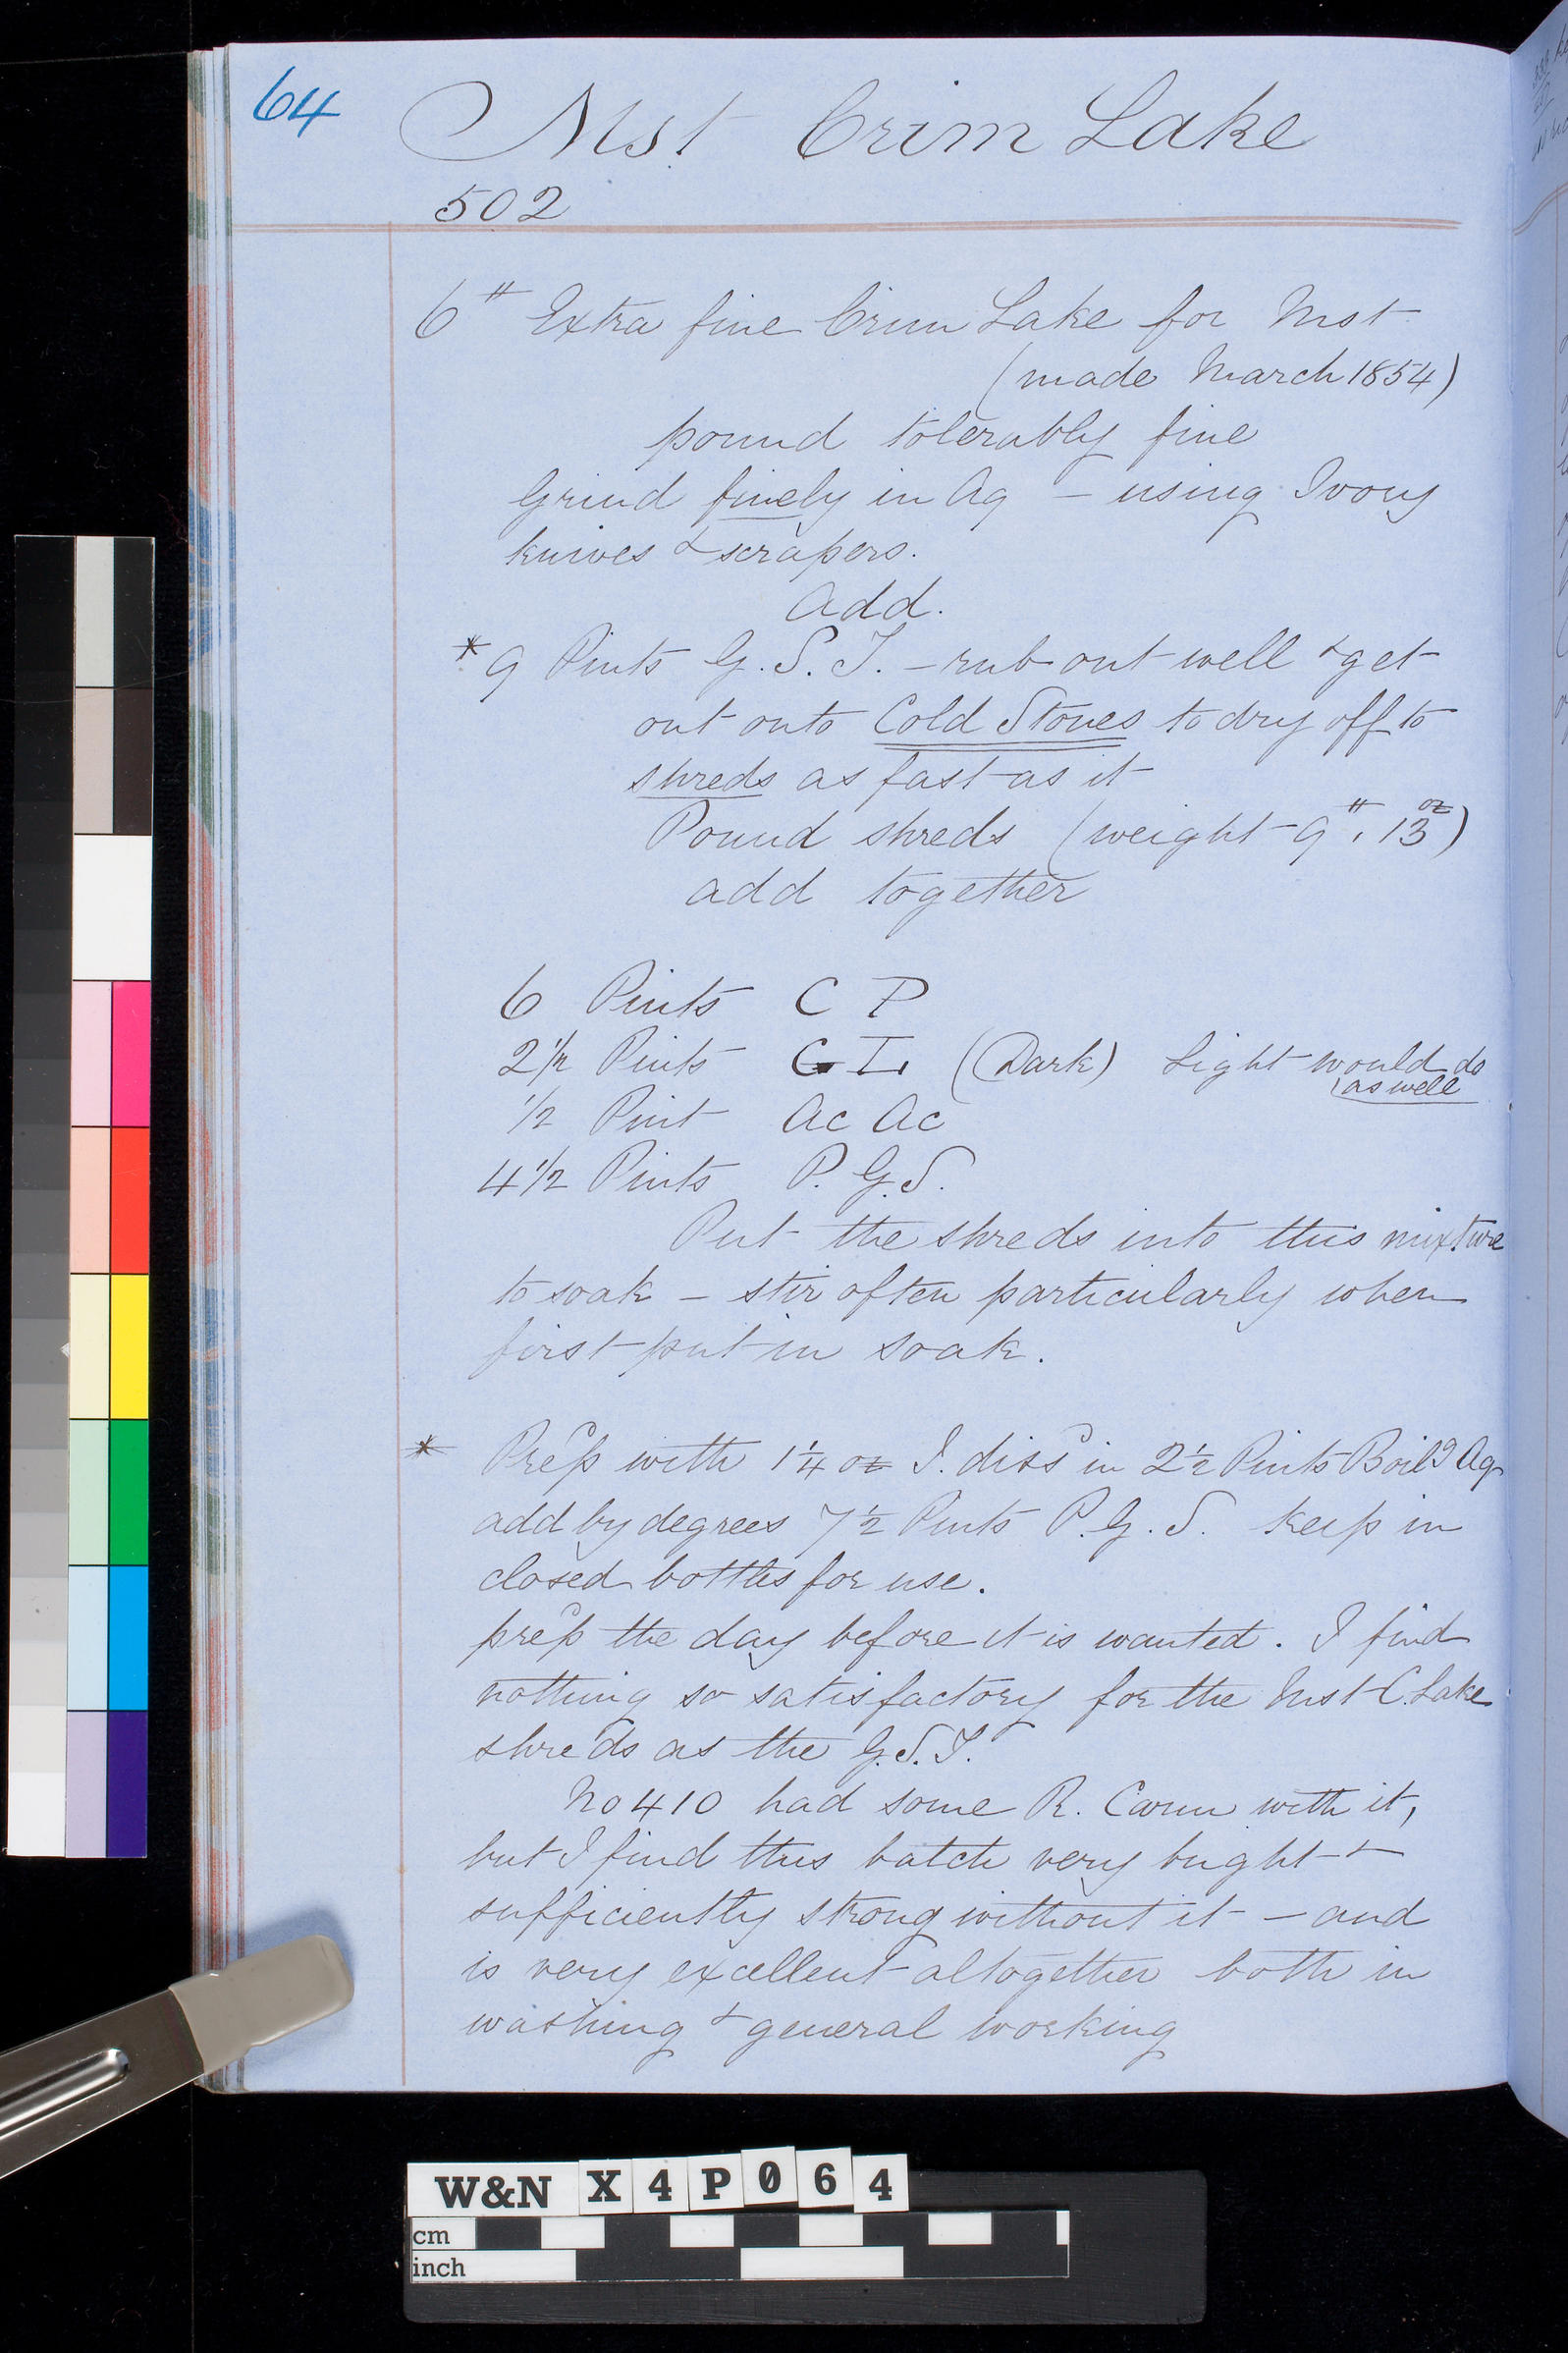 64
Mst Crim Lake
502
6 # Extra fine Crim Lake for Mst
(made March 1854)
pound tolerably fine
Grind finely in Aq - using Ivory
knives & scrapers.
Add.
* 9 Pints G. S. T. - rub out well & get
out onto Cold Stones to dry off to
shreds as fast as it
Pound shreds (weight 9 # . 13 oz)
add together
6 Pints C P
2 1/2 Pints G L (Dark) Light would do
as well
1/2 Pint Ac Ac
4 1/2 Pints P. G. S.
Put the shreds into this mixture
to soak - stir often particularly when
first put in soak.
* Prep with 1 1/4 oz T. diss in 2 1/2 Pints Boilg Aq
add by degrees 7 1/2 Pints P. G. S. keep in
closed bottles for use.
prep the day before it is wanted. I find
nothing so satisfactory for the Mst C. Lake
shreds as the G. S. T.
No 410 had some R. Carm with it,
but I find this batch very bright &
sufficiently strong without it - and
is very excellent altogether both in
washing & general working
W&N X4P064
cm
inch